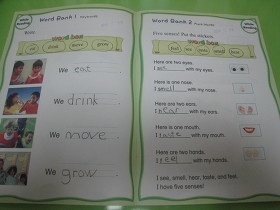 Word Bank 1
word box
eat drink move grow
We eat.
We drink.
We move.
We grow.
Word Bank 2
Five senses! Put the stickers.
word box
feel see hear smell taste
Here are two eyes.
I see with my eyes.
Here is one nose.
I smell with my nose.
Here are two ears.
I hear with my ears.
Here is one mouth.
I taste with my mouth.
Here are two hands.
I feel with my hands.
I see, smell, hear, taste, and feel.
I have five senses!